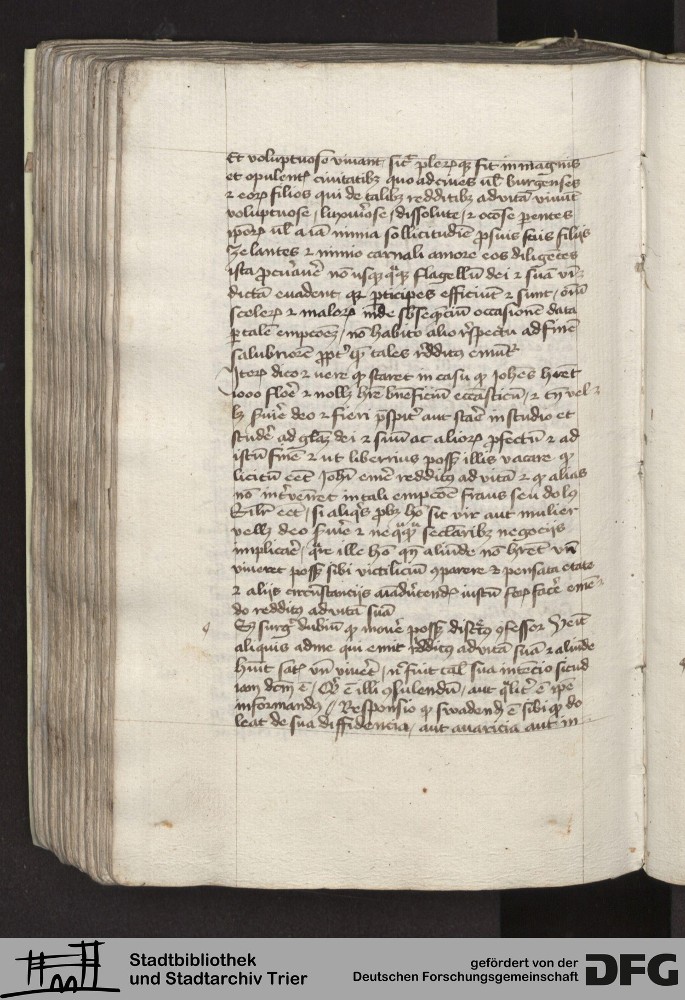 Et voluptuose vivant sicut plerumque fit in magnis
et opulentis civitatibus quo ad cives vel burgenses
et eorum filios qui de talibus redditibus ad vitam vivunt
voluptuose / luxuriose / dissolute / et ociose parentes
ipsorum vel alias nimia sollicitudine pro suis filiis
zelantes et nimio carnali amore eos diligentes
ista non usquequaque flagellum dei et suam vin
dictam evadent quia participes efficiuntur et sunt / omnium
scelerum et malorum inde subsequencium occasionem data
per talem empcionem / non habito alio respectu ad finem
salubriorem propter quem tales redditus emuntur
Iterum dico et vere quod staret in casu quod Johannes haberet
1000 florenos et nollet habere beneficium ecclesiasticum / et tamen vel
let servire deo et fieri presbiter aut stare in studio et
studere ad gloriam dei et suum ac aliorum profectum et ad
istum finem et ut liberius posset illis vacare quod
licitum esset Johanni emere redditus ad vitam et quod alias
non interveniret in tali empcione fraus seu dolus
Similiter esset / si aliquis probus homo sive vir aut mulier
vellet deo servire et nequaquam secularibus negociis
implicari / quare ille homo quando aliunde non haberet unde
viveret posset sibi victilicium comparare et pensata etate
et aliis circumstanciis advertendis iustum forum facere emen
do redditus ad vitam suam
Sed surgit dubium quod movere posset discretus confessor Venit
aliquis ad me qui emit redditus ad vitam suam et aliunde
habuit satis unde viveret / nec fuit talis sua intencio sicud
iam dictum est / Quid est illi consulendum / aut qualiter est ipse
informandus // Responsio quod suadendum est sibi quod do
leat de sua diffidencia / aut avaricia aut in
Stadtbibliothek
und Stadtarchiv Trier
gefördert von der
Deutschen Forschungsgemeinschaft
DFG